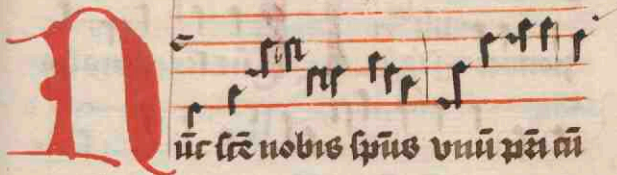 Nūc scē nobis spūs vnū pr̄i cū